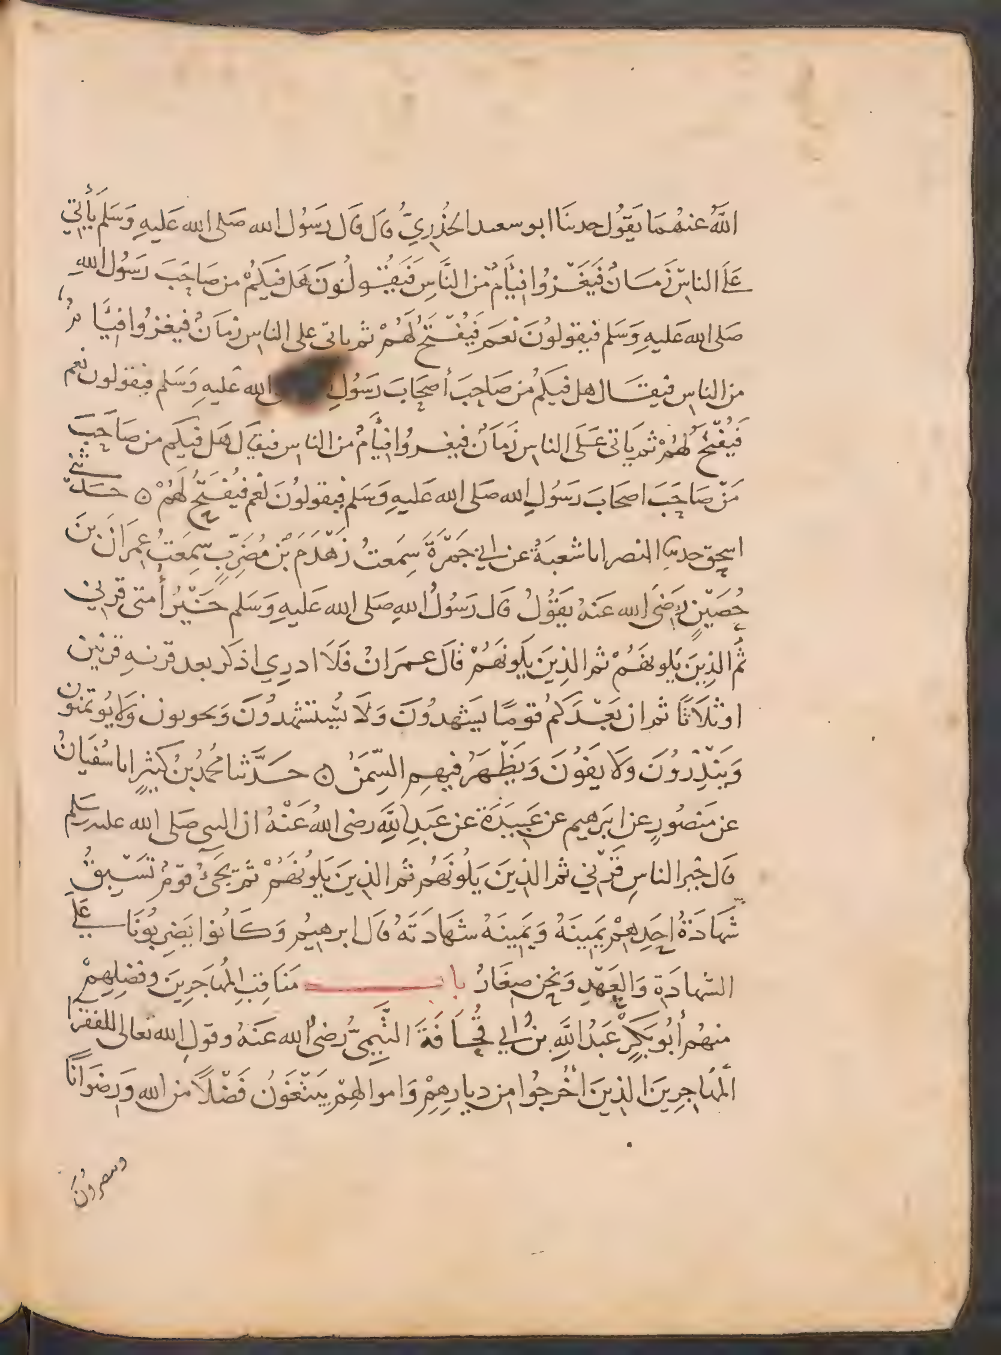 اللهُ عنهُمَا يَقُول حدثنا ابو سعيد الخُدْرِيُّ قال قال رَسُول الله صَلى الله عَليهِ وَسَلم يَأْتِي
عَلَى الناسِ زَمَانٌ فَيَغْزُوا فِئَامٌ مّن النَّاسِ فَيَقُولُونَ هَل فِيكُمْ من صَاحَبَ رَسُول اللهِ
صَلى الله عَليهِ وَسَلم فيقولونَ نَعَم فَيُفْتَحُ لَهُمْ ثم ياتى على الناس زمَانٌ فيغزُوا فِئَامٌ
من الناسِ فيقال هل فيكم من صَاحَبَ أصحَابَ رَسُولِ الله عليهِ وَسَلم فيقولون نعم
فَيُفْتَحُ لَهُمْ ثم ياتى عَلَى الناسِ زَمَانٌ فيغزوا فِئَامٌ من الناس فيقال هَل فيكم من صَاحَبَ
مَنْ صَاحَبَ اصحَابَ رَسُولِ الله صَلى الله عَليهِ وَسَلم فيقولونَ نَعم فيُفتَحُ لَهُمْ ۞ حَدّثني
اسحق حدثنا النصر انا شعبَةُ عن ابي جَمْرَةَ سَمِعتُ زَهْدَمَ بْنَ مُضَرِّبٍ سِمعَتُ عِمرَانَ بنَ
حُصَيْنٍ رَضَى الله عَنهُ يَقُولُ قال رَسُولُ اللهِ صَلى الله عَليهِ وَسَلم خَيْرُ أُمتى قرني
ثُم الذِينَ يَلونَهُمْ ثم الذِينَ يَلونَهُمْ قال عمرَانُ فَلَا ادرِي اذكر بعد قرنهِ قرنين
او ثلَاثًا ثم ان بَعْدَكم قومًا يَشهدُونَ وَلَا يُستشهدُونَ وَيخونون وَلَا يُوتمنون
وَيَنْذِرُونَ وَلَا يَفُونَ وَيَظْهَرُ فيهِم السِّمَنُ ۞ حَدَّثنا محمدُ بْنُ كَثِيرٍ انا سُفيَانُ
عن مَنصُورٍ عن ابرَهيم عن عَبِيدَةَ عن عَبدِ اللَّهِ رضى اللهُ عَنْهُ ان النبي صَلى الله عليه وسَلم
قال خير الناسِ قَرْني ثم الذينَ يَلونَهُم ثم الذينَ يَلونَهُمْ ثم يَجئُ قومٌ تَسْبِقُ
شَهَادَةُ اَحَدِهِمْ يَمينَهُ وَيَمينُهُ شهَادَتَهُ قال ابرهيمُ وَكَانُوا يَضربُونَا عَلى
الشهادَةِ وَالعَهْدِ وَنحن صِغَارٌ باب مَنَاقبِ المُهَاجرِينَ وفضلِهِمْ
منهُم أَبُو بَكْرٍ عَبْدُ اللَّهِ بنُ أبي قُحَافَةَ التَّيْمِيُّ رَضىَ الله عَنهُ وقولِ الله تعالى للفقرا
المُهَاجِرِينَ الذينَ أُخْرِجُوا من ديارِهِمْ وَاموالهِمْ يَبْتَغُونَ فَضْلًا من الله وَرِضوَانًا
وينصرُونَ